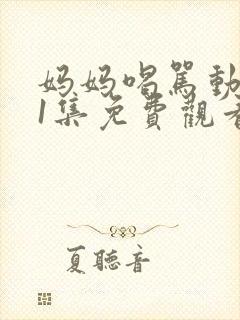 妈妈喝骂動
1集免費觀看
夏聽音